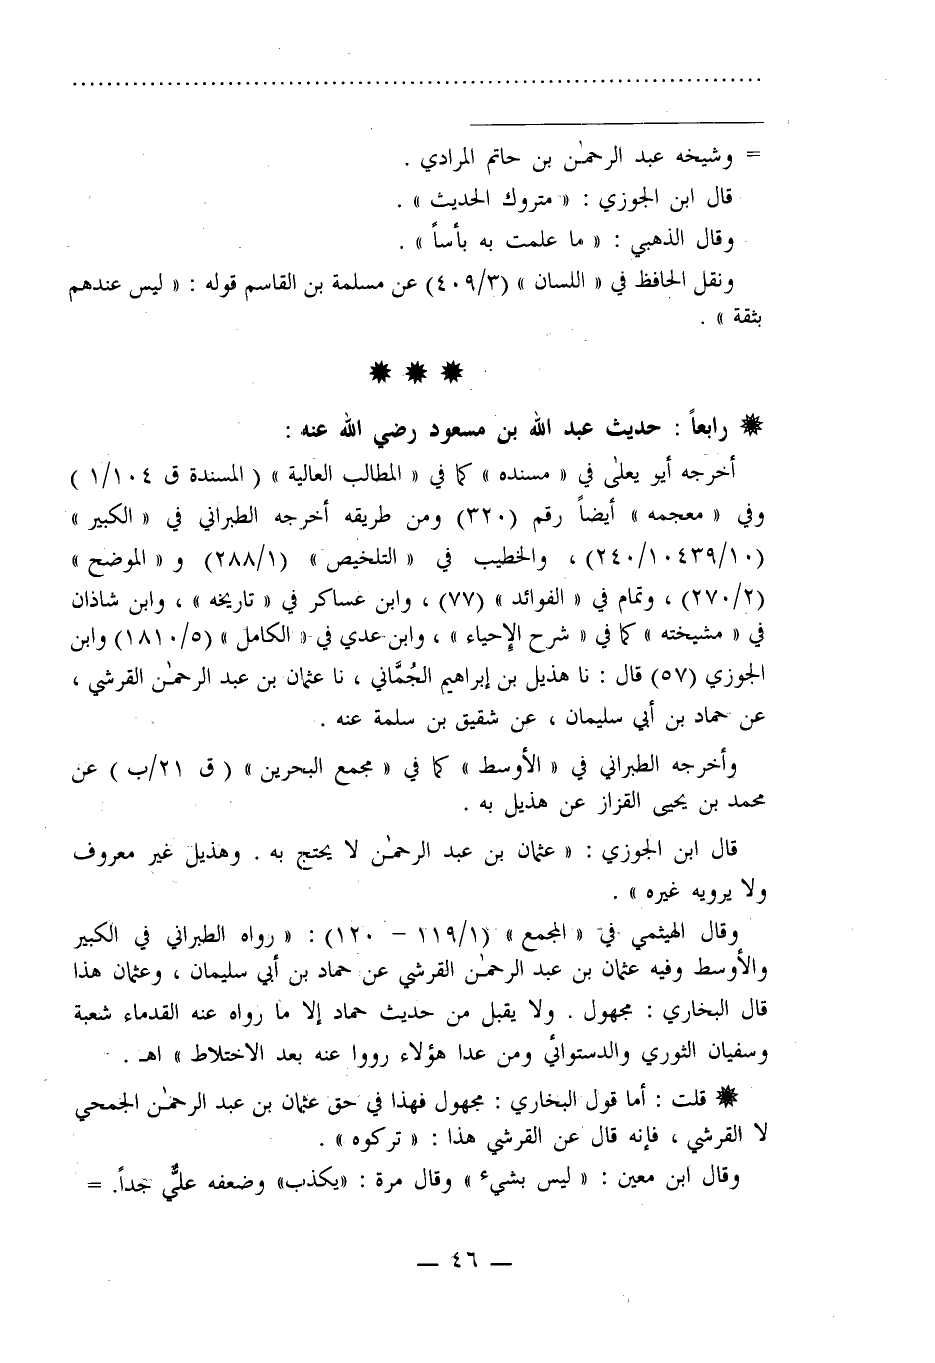 = وشيخه عبد الرحمٰن بن حاتم المرادي .
قال ابن الجوزي : « متروك الحديث » .
وقال الذهبي : « ما علمت به بأساً » .
ونقل الحافظ في « اللسان » (٤٠٩/٣) عن مسلمة بن القاسم قوله : « ليس عندهم
بثقة » .
✹ ✹ ✹
✹ رابعاً : حديث عبد الله بن مسعود رضي الله عنه :
أخرجه أبو يعلىٰ في « مسنده » كما في « المطالب العالية » ( المسندة ق ١/١٠٤ )
وفي « معجمه » أيضاً رقم (٣٢٠) ومن طريقه أخرجه الطبراني في « الكبير »
(٢٤٠/١٠٤٣٩/١٠) ، والخطيب في « التلخيص » (٢٨٨/١) و « الموضح »
(٢٧٠/٢) ، وتمام في « الفوائد » (٧٧) ، وابن عساكر في « تاريخه » ، وابن شاذان
في « مشيخته » كما في « شرح الإحياء » ، وابن عدي في « الكامل » (١٨١٠/٥) وابن
الجوزي (٥٧) قال : نا هذيل بن إبراهيم الجُمَّاني ، نا عثمان بن عبد الرحمٰن القرشي ،
عن حماد بن أبي سليمان ، عن شقيق بن سلمة عنه .
وأخرجه الطبراني في « الأوسط » كما في « مجمع البحرين » ( ق ٢١/ب ) عن
محمد بن يحيى القزاز عن هذيل به .
قال ابن الجوزي : « عثمان بن عبد الرحمٰن لا يحتج به . وهذيل غير معروف
ولا يرويه غيره » .
وقال الهيثمي في « المجمع » (١١٩/١ – ١٢٠) : « رواه الطبراني في الكبير
والأوسط وفيه عثمان بن عبد الرحمٰن القرشي عن حماد بن أبي سليمان ، وعثمان هذا
قال البخاري : مجهول . ولا يقبل من حديث حماد إلا ما رواه عنه القدماء شعبة
وسفيان الثوري والدستوائي ومن عدا هؤلاء رووا عنه بعد الاختلاط » اهـ .
✹ قلت : أما قول البخاري : مجهول فهذا في حق عثمان بن عبد الرحمٰن الجمحي
لا القرشي ، فإنه قال عن القرشي هذا : « تركوه » .
وقال ابن معين : « ليس بشيء » وقال مرة : «يكذب» وضعفه عليٌّ جداً. =
— ٤٦ —